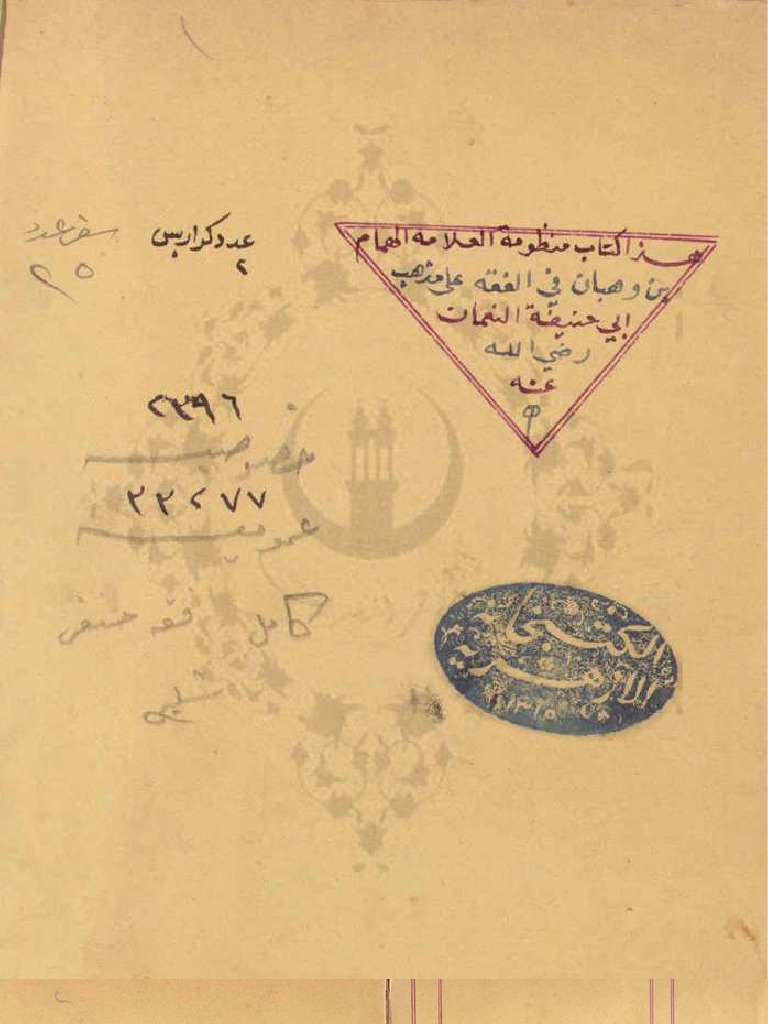 هذا كتاب منظومة العلامه الهمام
بن وهبان في الفقه على مذهب
ابي حنيفة النعمان
رضي الله
عنه
عدد كراريس
٢
٢٥
٢٣٩٦
خصوصيه
٣٣٢٧٧
عموميه
كامل فقه حنفي
الكتبخانة
الأزهرية